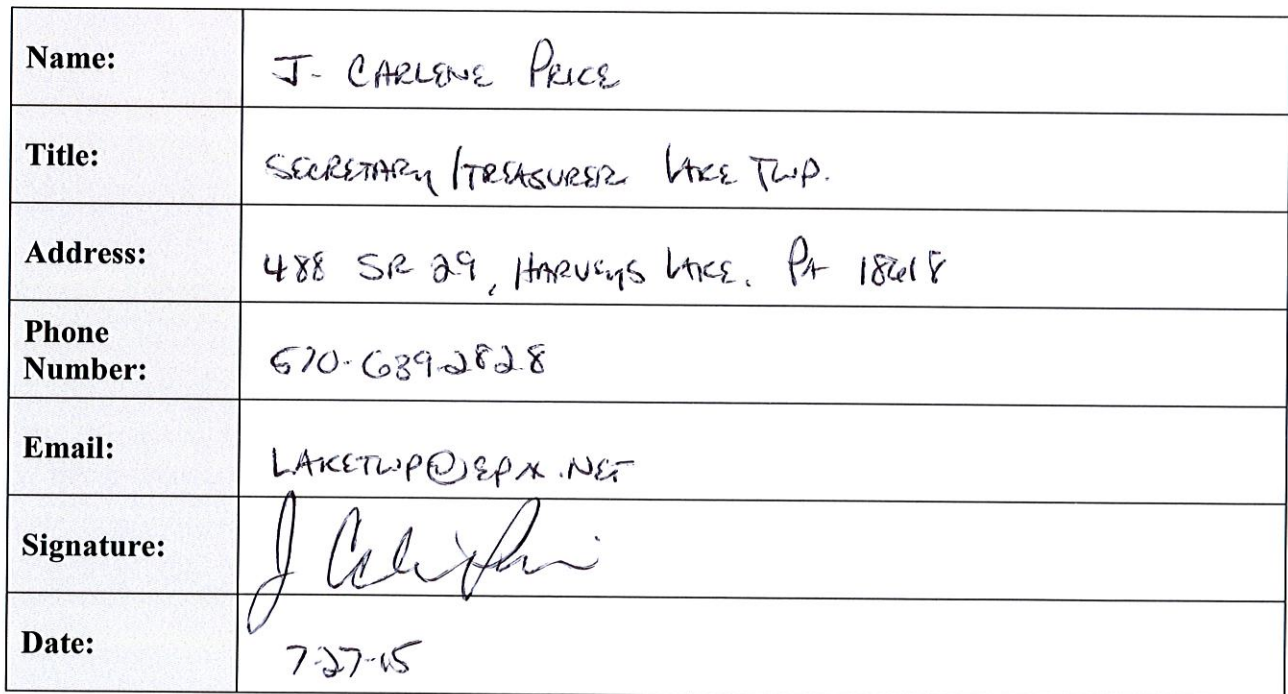 Name: J. CARLENE PRICE
Title: SECRETARY/TREASURER LAKE TWP.
Address: 488 SR 29, HARVEYS LAKE, PA 18618
Phone
Number: 570-639-2828
Email: LAKETWP@EPX.NET
Signature: J Carlene Price
Date: 7-27-15